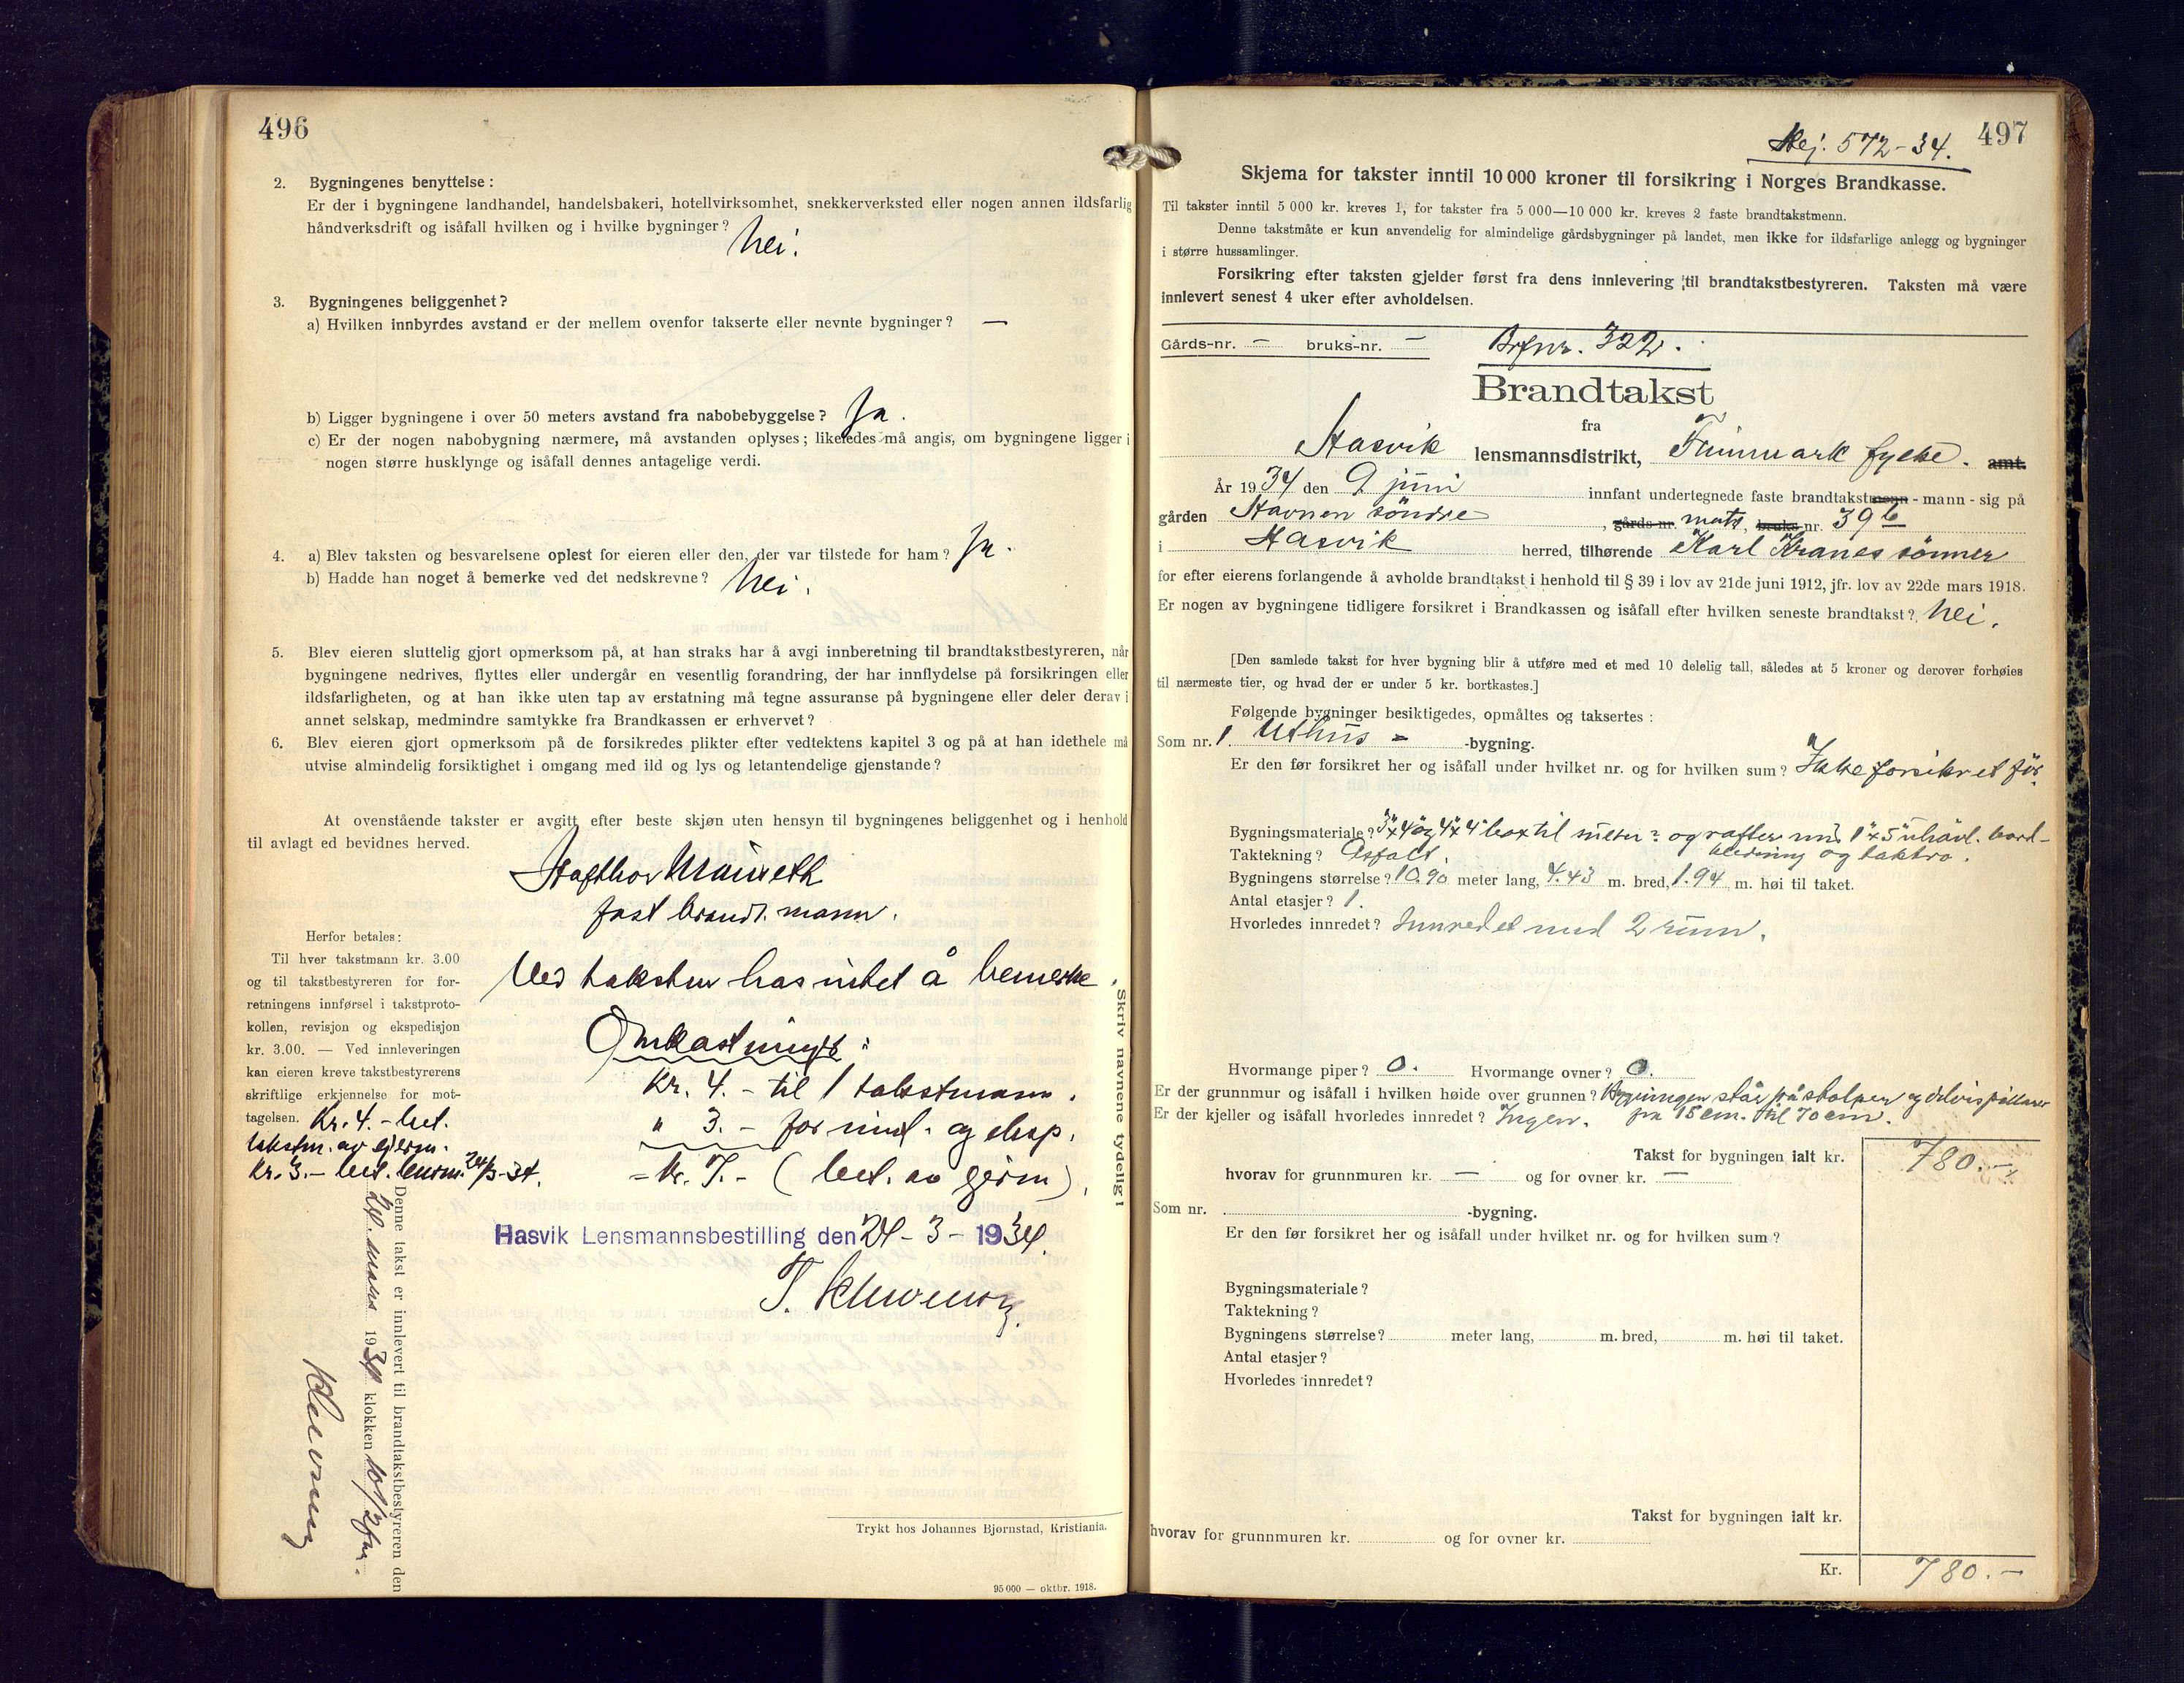 496
2. Bygningenes benyttelse:
Er der i bygningene landhandel, handelsbakeri, hotellvirksomhet, snekkerverksted eller nogen annen ildsfarlig
håndverksdrift og isåfall hvilken og i hvilke bygninger? Nei.
3. Bygningenes beliggenhet?
a) Hvilken innbyrdes avstand er der mellem ovenfor takserte eller nevnte bygninger? —
b) Ligger bygningene i over 50 meters avstand fra nabobebyggelse? Ja.
c) Er der nogen nabobygning nærmere, må avstanden oplyses; likeledes må angis, om bygningene ligger i
nogen større husklynge og isåfall dennes antagelige verdi.
4. a) Blev taksten og besvarelsene oplest for eieren eller den, der var tilstede for ham? Ja.
b) Hadde han noget å bemerke ved det nedskrevne? Nei.
5. Blev eieren sluttelig gjort opmerksom på, at han straks har å avgi innberetning til brandtakstbestyreren, når
bygningene nedrives, flyttes eller undergår en vesentlig forandring, der har innflydelse på forsikringen eller
ildsfarligheten, og at han ikke uten tap av erstatning må tegne assuranse på bygningene eller deler derav i
annet selskap, medmindre samtykke fra Brandkassen er erhvervet?
6. Blev eieren gjort opmerksom på de forsikredes plikter efter vedtektens kapitel 3 og på at han idethele må
utvise almindelig forsiktighet i omgang med ild og lys og letantendelige gjenstande?
At ovenstående takster er avgitt efter beste skjøn uten hensyn til bygningenes beliggenhet og i henhold
til avlagt ed bevidnes herved.
fast brandt. mann.
Herfor betales:
Til hver takstmann kr. 3.00
og til takstbestyreren for for-
retningens innførsel i takstproto-
kollen, revisjon og ekspedisjon
kr. 3.00. — Ved innleveringen
kan eieren kreve takstbestyrerens
skriftlige erkjennelse for mot-
tagelsen. Kr. 4.- bet.
takstm. av eieren.
Kr. 3.- bet. 24/3-34.
Ved taksten has intet å bemerke.
Omkastninger:
Kr. 4.- til 1 takstmann.
" 3.- for innf. og eksp.
= Kr. 7.- (bet. av
Skriv navnene tydelig!
Hasvik Lensmannsbestilling den 24-3-1934.
Denne takst er innlevert til brandtakstbestyreren den
24. mars 1934 klokken 10 1/2 fm.
Trykt hos Johannes Bjørnstad, Kristiania.
95 000 — oktbr. 1918.
497
572-34.
Skjema for takster inntil 10 000 kroner til forsikring i Norges Brandkasse.
Til takster inntil 5 000 kr. kreves 1, for takster fra 5 000—10 000 kr. kreves 2 faste brandtakstmenn.
Denne takstmåte er kun anvendelig for almindelige gårdsbygninger på landet, men ikke for ildsfarlige anlegg og bygninger
i større hussamlinger.
Forsikring efter taksten gjelder først fra dens innlevering til brandtakstbestyreren. Taksten må være
innlevert senest 4 uker efter avholdelsen.
Gårds-nr. — bruks-nr. — Brfnr. 322.
Brandtakst
fra
Hasvik lensmannsdistrikt, Finnmark fylke. amt.
År 1934 den 9 juni innfant undertegnede faste brandtakstmenn - mann - sig på
gården Havnen söndre, gårds-nr. matr. bruks-nr. 39 b
i Hasvik herred, tilhørende Karl Kranes sönner
for efter eierens forlangende å avholde brandtakst i henhold til § 39 i lov av 21de juni 1912, jfr. lov av 22de mars 1918.
Er nogen av bygningene tidligere forsikret i Brandkassen og isåfall efter hvilken seneste brandtakst? Nei.
[Den samlede takst for hver bygning blir å utføre med et med 10 delelig tall, således at 5 kroner og derover forhøies
til nærmeste tier, og hvad der er under 5 kr. bortkastes.]
Følgende bygninger besiktigedes, opmåltes og taksertes:
Som nr. 1. Uthus - -bygning.
Er den før forsikret her og isåfall under hvilket nr. og for hvilken sum? Ikke forsikret för.
Bygningsmateriale? 3"x4" og 4"x4" til og rafter med 1"x5" uhövl. bord-
kledning og taktro.
Taktekning? Asfalt.
Bygningens størrelse? 10.90 meter lang, 4.43 m. bred, 1.94 m. høi til taket.
Antal etasjer? 1.
Hvorledes innredet? Innredet med 2 rum.
Hvormange piper? 0. Hvormange ovner? 0.
Er der grunnmur og isåfall i hvilken høide over grunnen? Bygningen står på stolper og delvis pillarer
fra 15 cm. til 70 cm.
Er der kjeller og isåfall hvorledes innredet? Ingen.
Takst for bygningen ialt kr. 780.-
hvorav for grunnmuren kr. — og for ovner kr. —
Som nr. -bygning.
Er den før forsikret her og isåfall under hvilket nr. og for hvilken sum?
Bygningsmateriale?
Taktekning?
Bygningens størrelse? meter lang, m. bred, m. høi til taket.
Antal etasjer?
Hvorledes innredet?
Takst for bygningen ialt kr.
hvorav for grunnmuren kr. og for ovner kr.
Kr. 780.-